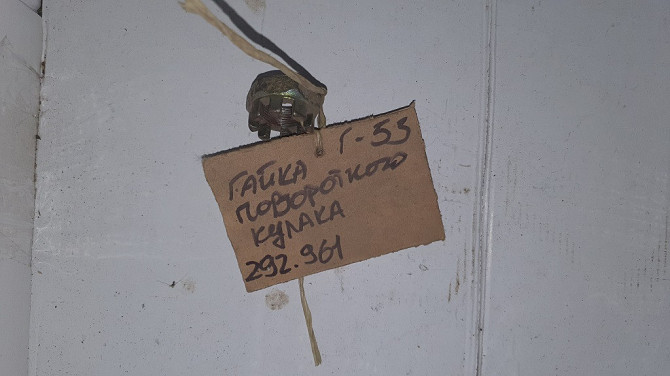 ГАЙКА Г-53
ПОВОРОТНОГО
КУЛАКА
292.961